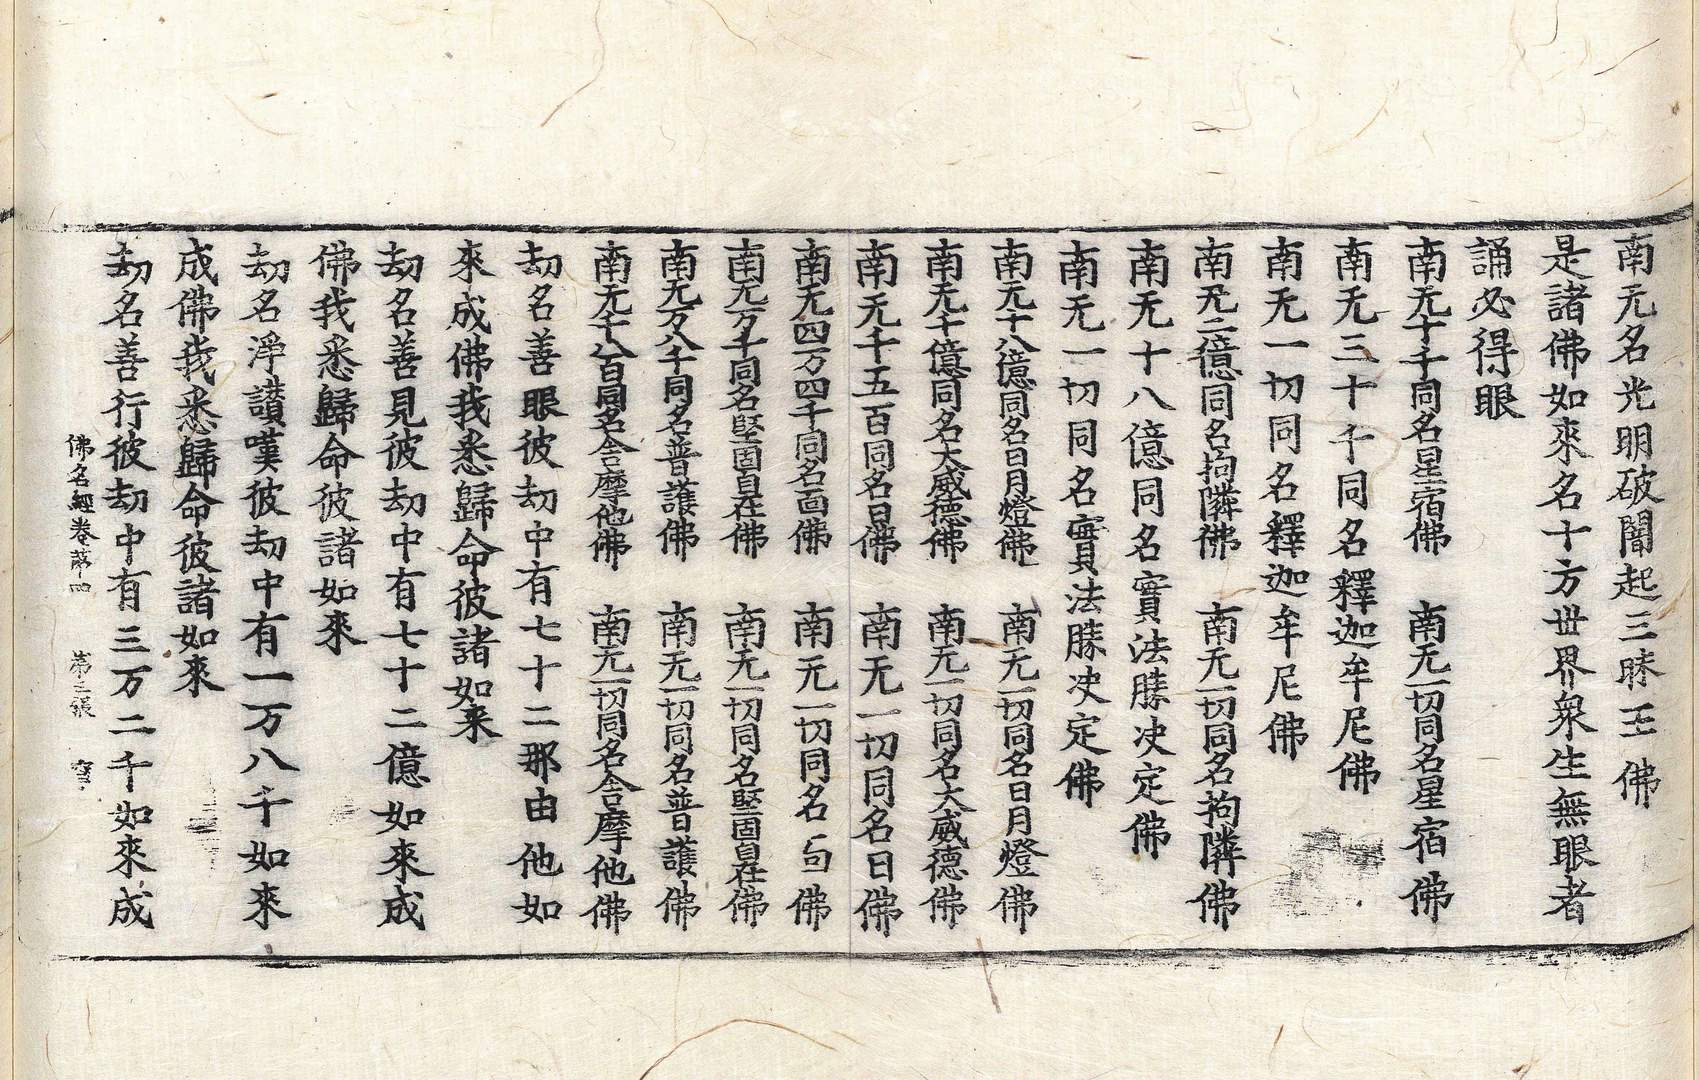 南无名光明破闇起三昧王佛
是諸佛如來名十方世界衆生無眼者
誦必得眼
南无十千同名星宿佛　南无一切同名星宿佛
南无三十千同名釋迦牟尼佛
南无一切同名釋迦牟尼佛
南无二億同名拘隣佛　南无一切同名拘隣佛
南无十八億同名實法勝决定佛
南无一切同名實法勝决定佛
南无十八億同名日月燈佛　南无一切同名日月燈佛
南无千億同名大威德佛　南无一切同名大威德佛
南无千五百同名日佛　南无一切同名日佛
南无四万四千同名面佛　南无一切同名面佛
南无万千同名堅固自在佛　南无一切同名堅固自在佛
南无万八千同名普護佛　南无一切同名普護佛
南无千八百同名舍摩他佛　南无一切同名舍摩他佛
劫名善眼彼劫中有七十二那由他如
來成佛我悉歸命彼諸如来
劫名善見彼劫中有七十二億如來成
佛我悉歸命彼諸如來
劫名淨讃嘆彼劫中有一万八千如來
成佛我悉歸命彼諸如來
劫名善行彼劫中有三万二千如來成
佛名經卷第四　第二張